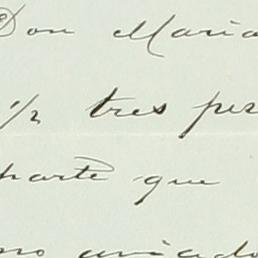 Don Maria
1/2 tres pes
parte que